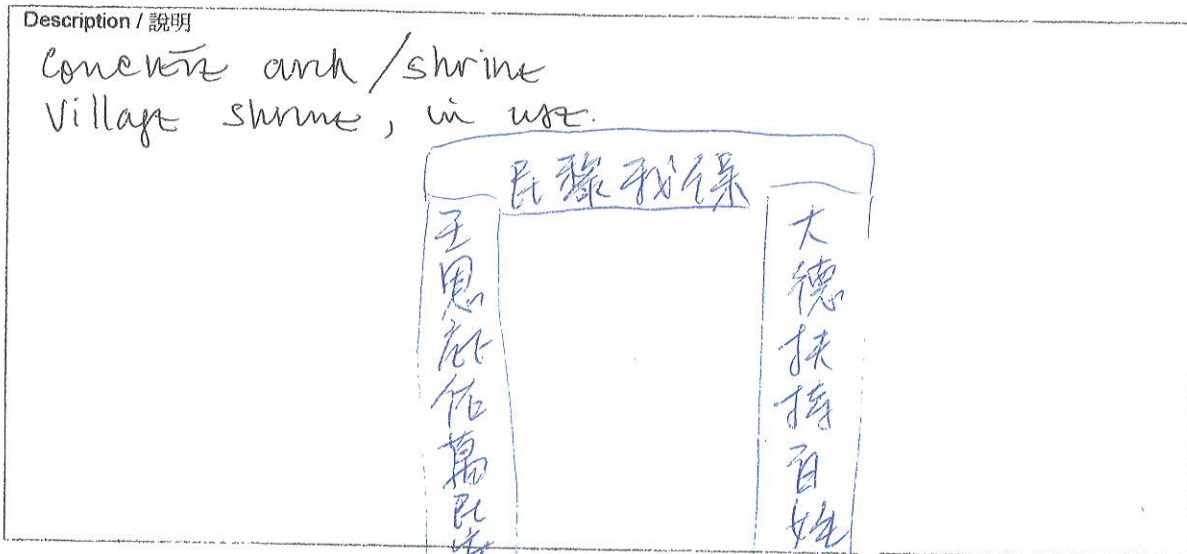 Description / 說明
Concrete arch / shrine
Village shrine, in use.
保我黎民
大德扶持百姓
王恩庇佑萬民